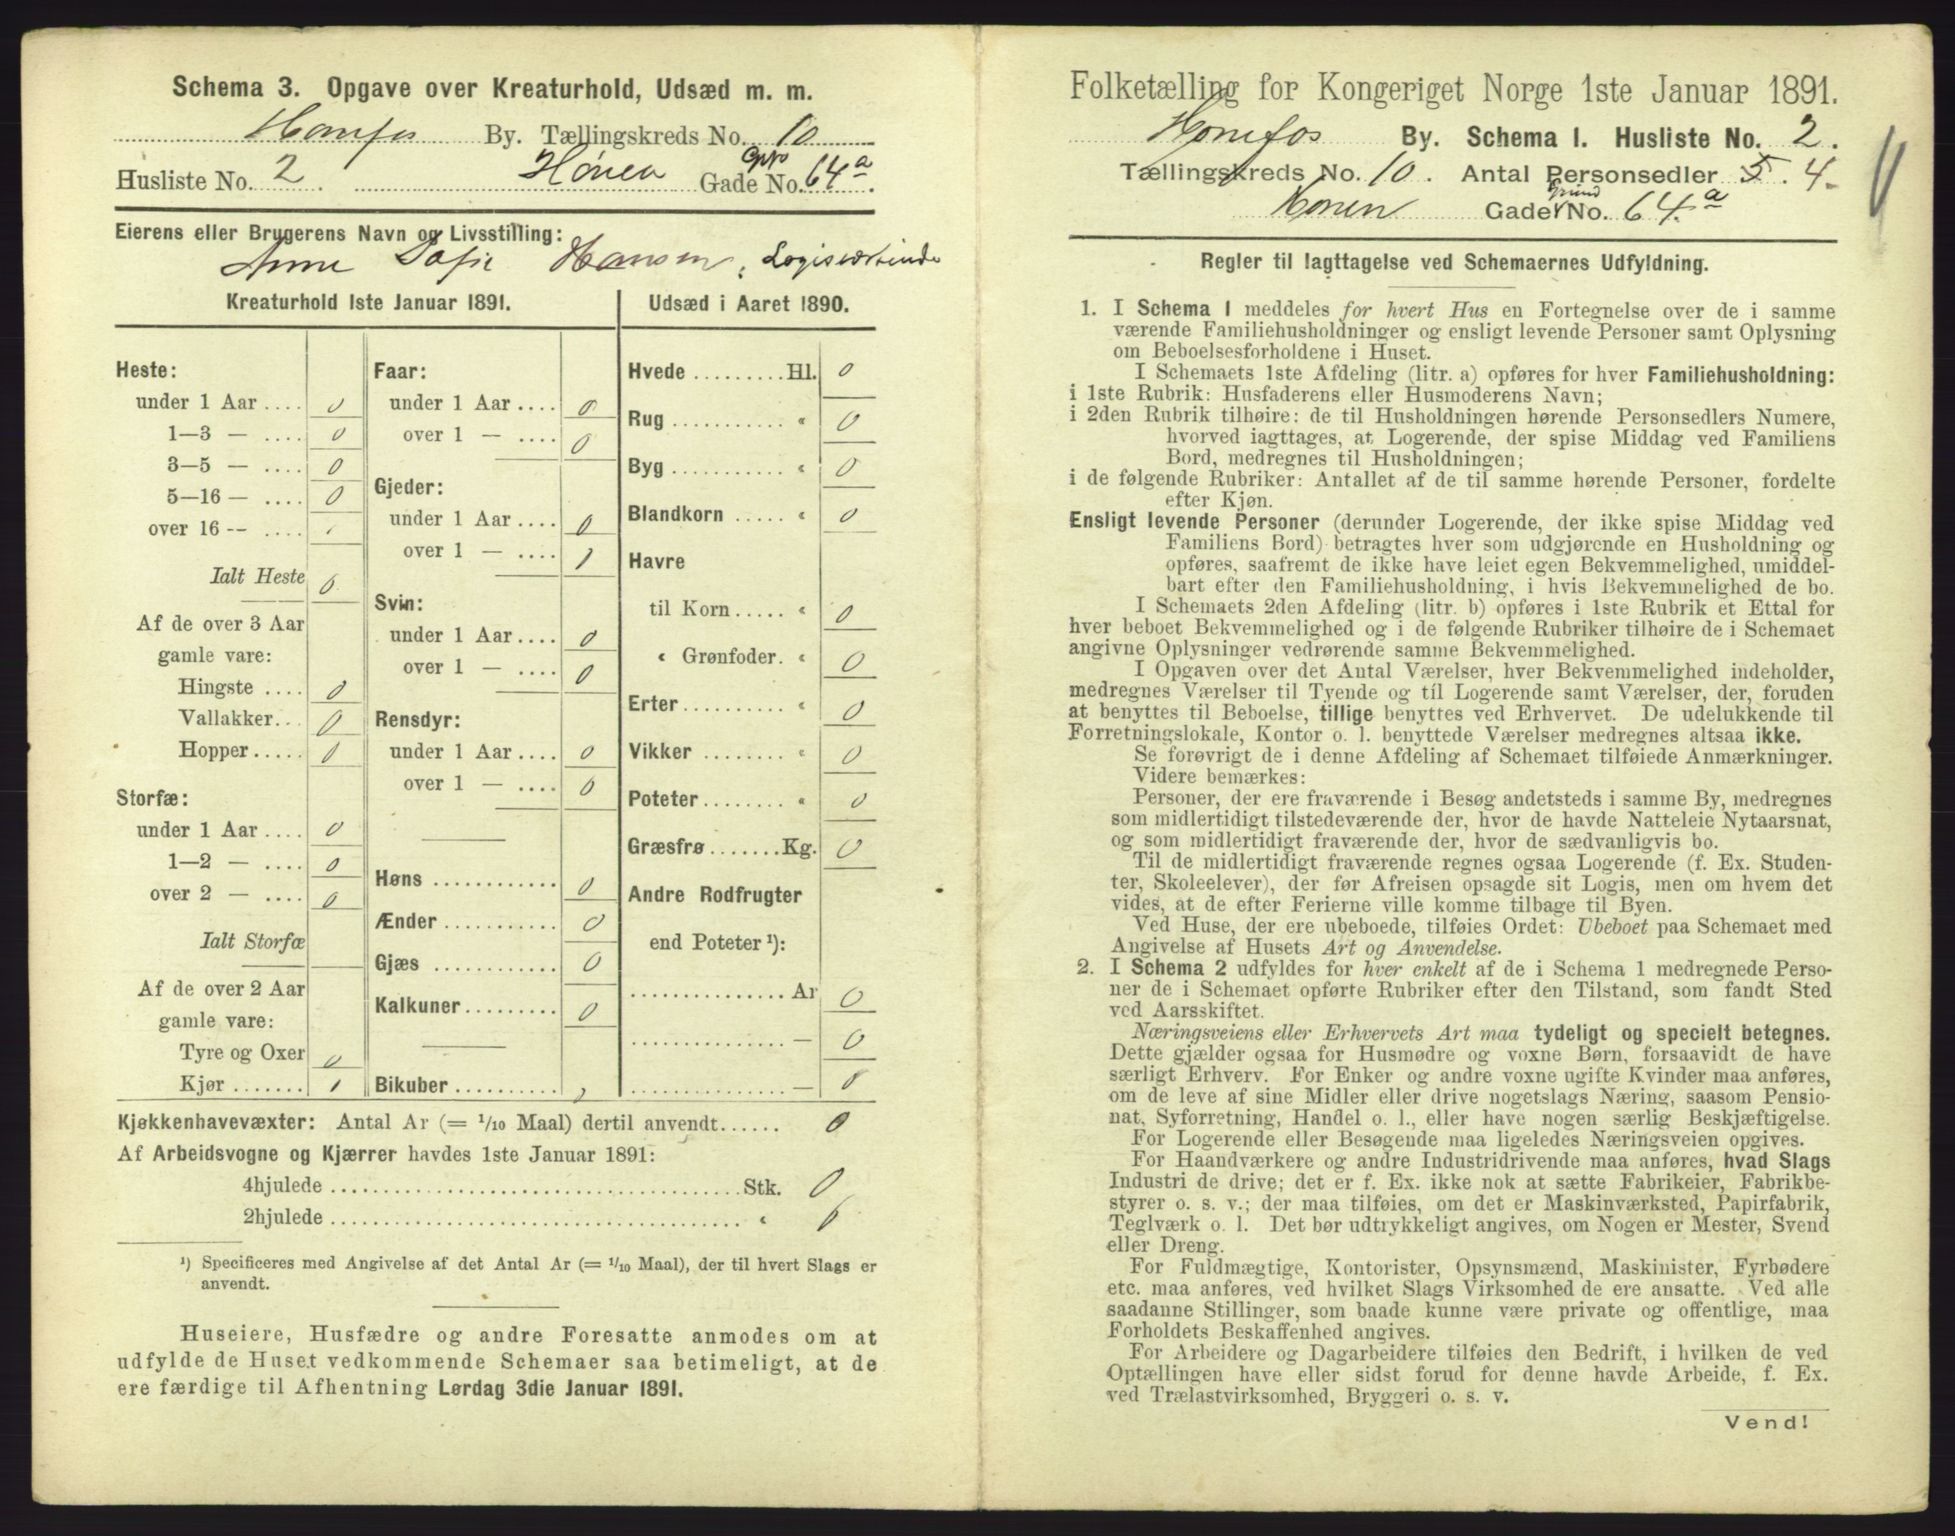 Schema 3. Opgave over Kreaturhold, Udsæd m. m.
Hønefos By. Tællingskreds No. 10
Husliste No. 2. Hønen Gade No. 64a.
Eierens eller Brugerens Navn og Livsstilling:
Anne Sofie Hansen, Logisværtinde
Kreaturhold 1ste Januar 1891.
Heste:
under 1 Aar .... 0
1—3 — .... 0
3—5 — .... 0
5—16 — .... 0
over 16 — ....
Ialt Heste 0
Af de over 3 Aar
gamle vare:
Hingste .... 0
Vallakker.. 0
Hopper ..... 0
Storfæ:
under 1 Aar .... 0
1—2 — .... 0
over 2 — .... 0
Ialt Storfæ
Af de over 2 Aar
gamle vare:
Tyre og Oxer 0
Kjør ....... 1
Faar:
under 1 Aar .... 0
over 1 — .... 0
Gjeder:
under 1 Aar .... 0
over 1 — .... 1
Svin:
under 1 Aar .... 0
over 1 — .... 0
Rensdyr:
under 1 Aar .... 0
over 1 — .... 0
Høns ............ 0
Ænder ........... 0
Gjæs ............ 0
Kalkuner ......... 0
Bikuber ..........
Udsæd i Aaret 1890.
Hvede ......... Hl. 0
Rug ........... " 0
Byg ........... " 0
Blandkorn ..... " 0
Havre
til Korn ..... " 0
" Grønfoder. " 0
Erter .......... " 0
Vikker ........ " 0
Poteter ........ " 0
Græsfrø ....... Kg. 0
Andre Rodfrugter
end Poteter ¹):
............... Ar 0
............... — 0
............... — 0
Kjøkkenhavevæxter: Antal Ar (= 1/10 Maal) dertil anvendt...... 0
Af Arbeidsvogne og Kjærrer havdes 1ste Januar 1891:
4hjulede ........................................ Stk. 0
2hjulede ........................................ " 0
¹) Specificeres med Angivelse af det Antal Ar (= 1/10 Maal), der til hvert Slags er
anvendt.
Huseiere, Husfædre og andre Foresatte anmodes om at
udfylde de Huset vedkommende Schemaer saa betimeligt, at de
ere færdige til Afhentning Lørdag 3die Januar 1891.
Folketælling for Kongeriget Norge 1ste Januar 1891.
Hønefos By. Schema 1. Husliste No. 2.
Tællingskreds No. 10. Antal Personsedler 5. 4.
Hønen Gade Grund No. 64.a
Regler til Iagttagelse ved Schemaernes Udfyldning.
1. I Schema 1 meddeles for hvert Hus en Fortegnelse over de i samme
værende Familiehusholdninger og ensligt levende Personer samt Oplysning
om Beboelsesforholdene i Huset.
I Schemaets 1ste Afdeling (litr. a) opføres for hver Familiehusholdning:
i 1ste Rubrik: Husfaderens eller Husmoderens Navn;
i 2den Rubrik tilhøire: de til Husholdningen hørende Personsedlers Numere,
hvorved iagttages, at Logerende, der spise Middag ved Familiens
Bord, medregnes til Husholdningen;
i de følgende Rubriker: Antallet af de til samme hørende Personer, fordelte
efter Kjøn.
Ensligt levende Personer (derunder Logerende, der ikke spise Middag ved
Familiens Bord) betragtes hver som udgjørende en Husholdning og
opføres, saafremt de ikke have leiet egen Bekvemmelighed, umiddel-
bart efter den Familiehusholdning, i hvis Bekvemmelighed de bo.
I Schemaets 2den Afdeling (litr. b) opføres i 1ste Rubrik et Ettal for
hver beboet Bekvemmelighed og i de følgende Rubriker tilhøire de i Schemaet
angivne Oplysninger vedrørende samme Bekvemmelighed.
I Opgaven over det Antal Værelser, hver Bekvemmelighed indeholder,
medregnes Værelser til Tyende og til Logerende samt Værelser, der, foruden
at benyttes til Beboelse, tillige benyttes ved Erhvervet. De udelukkende til
Forretningslokale, Kontor o. l. benyttede Værelser medregnes altsaa ikke.
Se forøvrigt de i denne Afdeling af Schemaet tilføiede Anmærkninger.
Videre bemærkes:
Personer, der ere fraværende i Besøg andetsteds i samme By, medregnes
som midlertidigt tilstedeværende der, hvor de havde Natteleie Nytaarsnat,
og som midlertidigt fraværende der, hvor de sædvanligvis bo.
Til de midlertidigt fraværende regnes ogsaa Logerende (f. Ex. Studen-
ter, Skoleelever), der før Afreisen opsagde sit Logis, men om hvem det
vides, at de efter Ferierne ville komme tilbage til Byen.
Ved Huse, der ere ubeboede, tilføies Ordet: Ubeboet paa Schemaet med
Angivelse af Husets Art og Anvendelse.
2. I Schema 2 udfyldes for hver enkelt af de i Schema 1 medregnede Perso-
ner de i Schemaet opførte Rubriker efter den Tilstand, som fandt Sted
ved Aarsskiftet.
Næringsveiens eller Erhvervets Art maa tydeligt og specielt betegnes.
Dette gjælder ogsaa for Husmødre og voxne Børn, forsaavidt de have
særligt Erhverv. For Enker og andre voxne ugifte Kvinder maa anføres,
om de leve af sine Midler eller drive nogetslags Næring, saasom Pensio-
nat, Syforretning, Handel o. l., eller have nogen særlig Beskjæftigelse.
For Logerende eller Besøgende maa ligeledes Næringsveien opgives.
For Haandværkere og andre Industridrivende maa anføres, hvad Slags
Industri de drive; det er f. Ex. ikke nok at sætte Fabrikeier, Fabrikbe-
styrer o. s. v.; der maa tilføies, om det er Maskinværksted, Papirfabrik,
Teglværk o. l. Det bør udtrykkeligt angives, om Nogen er Mester, Svend
eller Dreng.
For Fuldmægtige, Kontorister, Opsynsmænd, Maskinister, Fyrbødere
etc. maa anføres, ved hvilket Slags Virksomhed de ere ansatte. Ved alle
saadanne Stillinger, som baade kunne være private og offentlige, maa
Forholdets Beskaffenhed angives.
For Arbeidere og Dagarbeidere tilføies den Bedrift, i hvilken de ved
Optællingen have eller sidst forud for denne havde Arbeide, f. Ex.
ved Trælastvirksomhed, Bryggeri o. s. v.
Vend!